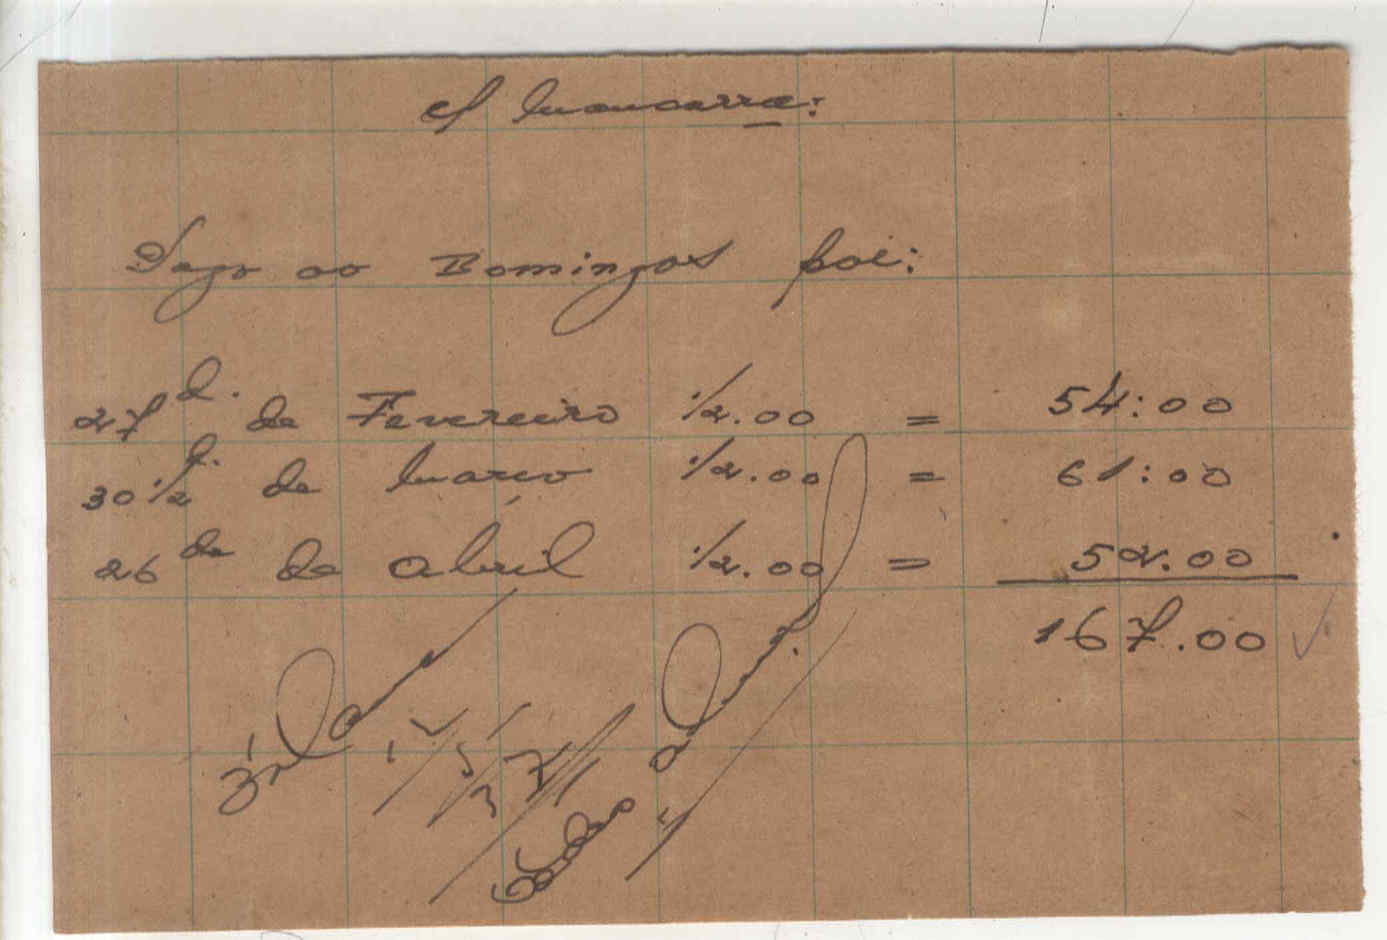 A mancarra:
Pago ao Domingos foi:
27 d. de Fevereiro 1/2.00 = 54:00
30 1/2 d. de Março 1/2.00 = 61:00
26 de de Abril 1/2.00 = 52.00
167.00
12/5/37